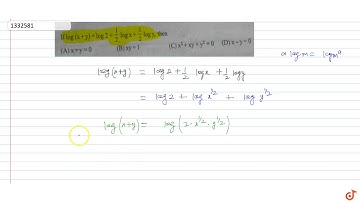 1332581
If log (x + y) = log 2 + 1/2 log x + 1/2 log y, then
(A) x + y = 0 (B) xy = 1 (C) x² + xy + y² = 0 (D) x − y = 0
a log m = log mᵃ
log(x+y) = log 2 + 1/2 log x + 1/2 log y
= log 2 + log x^1/2 + log y^1/2
log(x+y) = log (2 · x^1/2 · y^1/2)